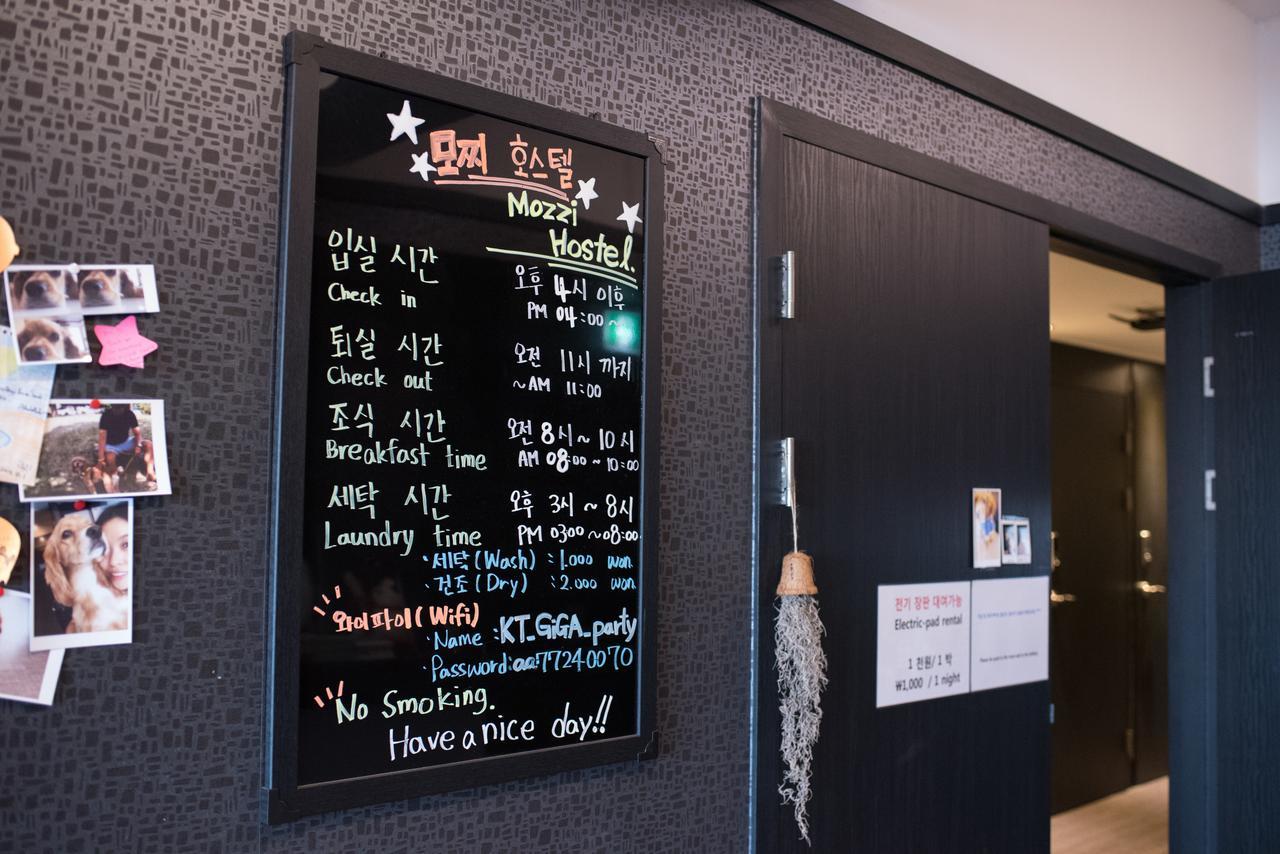 모찌 호스텔
Mozzi
Hostel.
입실 시간 오후 4시 이후
Check in PM 04:00 ~
퇴실 시간 오전 11시 까지
Check out ~AM 11:00
조식 시간 오전 8시~10시
Breakfast time AM 08:00 ~ 10:00
세탁 시간 오후 3시 ~ 8시
Laundry time PM 0300 ~08:00
·세탁(Wash) :1.000 won
·건조(Dry) :2.000 won
와이파이(Wifi)
·Name :KT_GiGA_party
·Password:aa77240070
No Smoking.
Have a nice day!!
전기 장판 대여가능
Electric-pad rental
1 천원/ 1 박
₩1,000 / 1 night